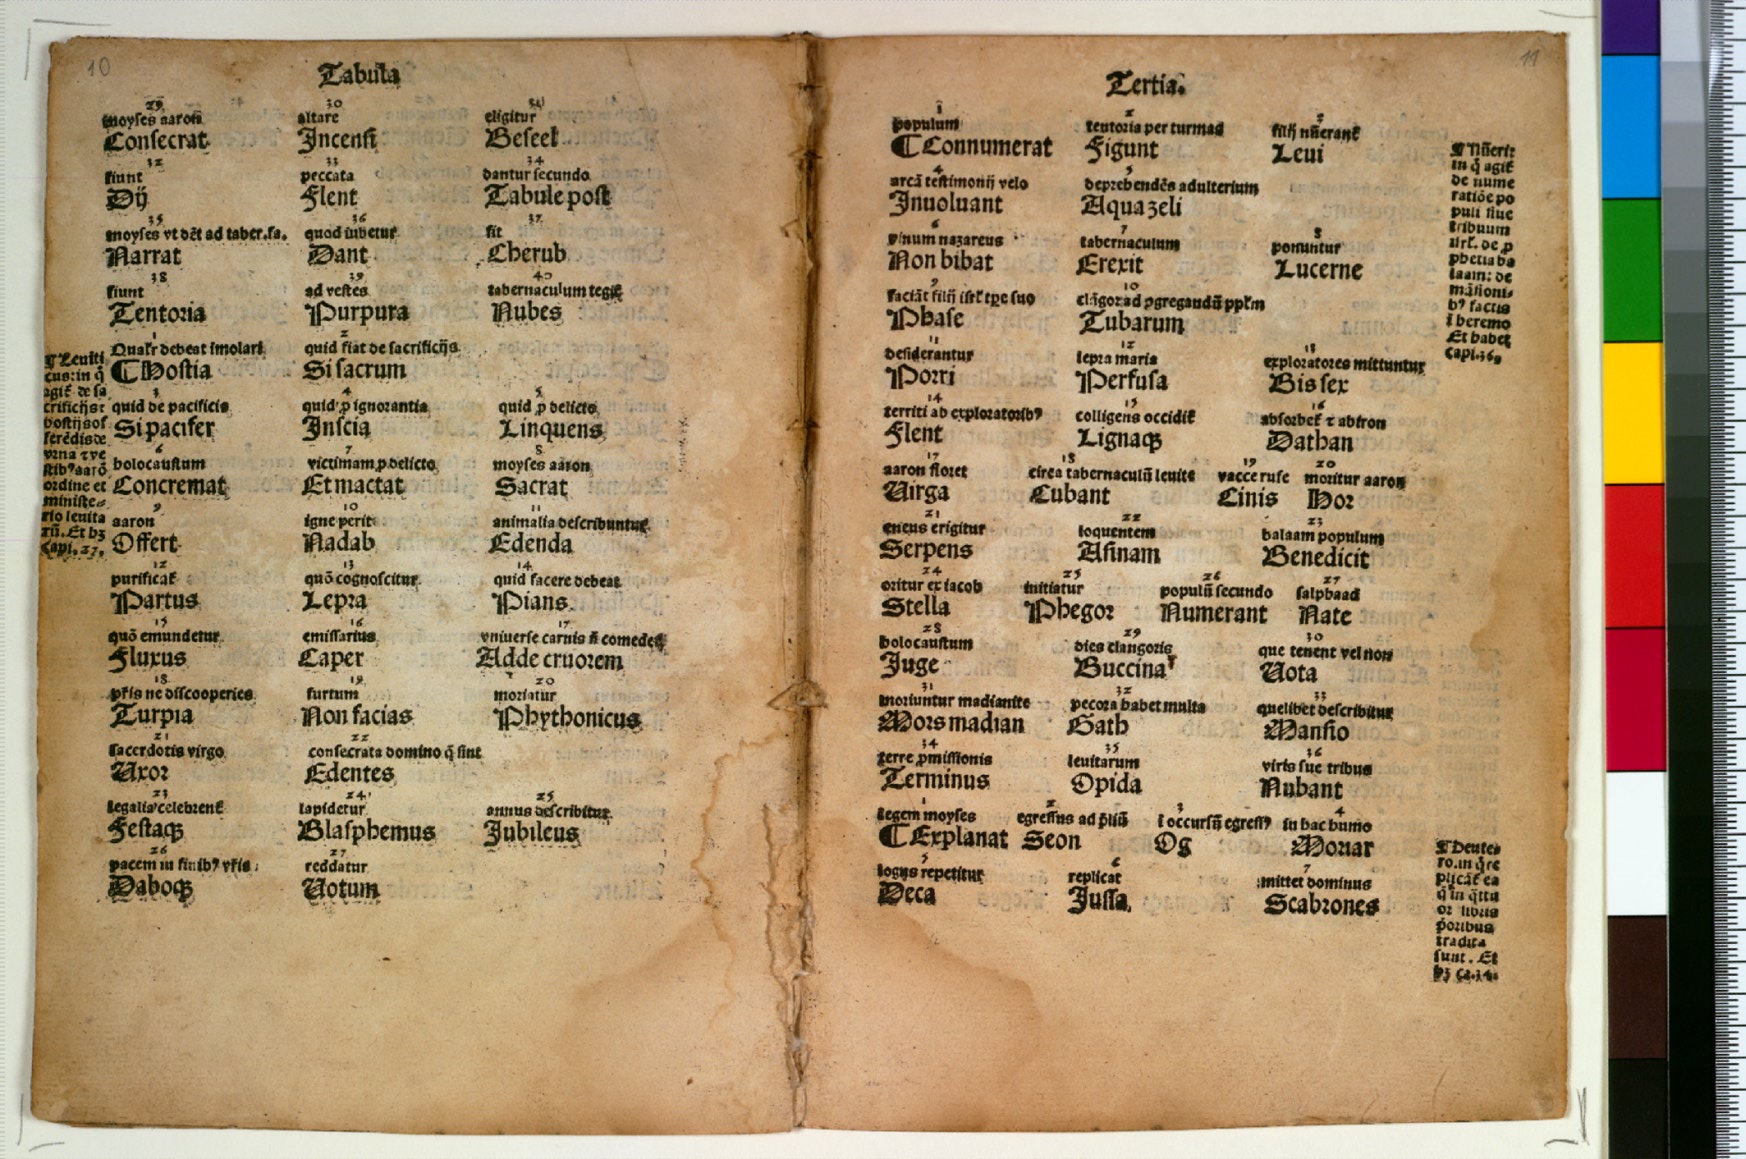 10
Tabula
29 30 31
moyses aaron altare eligitur
Consecrat Incensi Beseel
32 33 34
fiunt peccata dantur secundo
Dij Flent Tabule post
35 36 37
moyses vt dēt ad taber.fa. quod iubetur fit
Narrat Dant Cherub
38 39 40
fiunt ad vestes tabernaculum tegit
Tentoria Purpura Nubes
1 2
Qualr debeat imolari quid fiat de sacrificijs
¶ Hostia Si sacrum
3 4 5
quid de pacificis quid ꝓ ignorantia quid ꝓ delicto
Si pacifer Inscia Linquens
6 7 8
holocaustum victimam ꝓ delicto moyses aaron
Concremat Et mactat Sacrat
9 10 11
aaron igne perit animalia describuntur
Offert Nadab Edenda
12 13 14
purificat quō cognoscitur quid facere debeat
Partus Lepra Pians
15 16 17
quō emundetur emissarius vniuerse carnis n̄ comedet
Fluxus Caper Adde cruorem
18 19 20
pr̄is ne discooperies furtum moriatur
Turpia Non facias Phythonicus
21 22
sacerdotis virgo consecrata domino q̄ sint
Uxor Edentes
23 24 25
legalia celebrent lapidetur annus describitur
Festaqꝫ Blasphemus Jubileus
26 27
pacem in finibꝰ vr̄is reddatur
Daboqꝫ Uotum
¶ Leuiti
cus: in q̄
agit̄ de sa
crificijs ⁊
hostijs of
ferēdis: de
vrna ⁊ ve
stibꝰ aarō
ordine et
ministe⸗
rio leuita
rū. Et hꝫ
Capi. 27.
11
Tertia.
1 2 3
populum tentoria per turmas filij nūerant
¶ Connumerat Figunt Leui
4 5
arcā testimonij velo deprehendēs adulterium
Inuoluant Aqua zeli
6 7 8
vinum nazareus tabernaculum ponuntur
Non bibat Erexit Lucerne
9 10
faciāt filij isrl̄ tp̄e suo clāgor ad ꝯgregandū pplm̄
Phase Tubarum
11 12 13
desiderantur lepra maria exploratores mittuntur
Porri Perfusa Bis sex
14 15 16
territi ab exploratoribꝰ colligens occidit̄ absorbet̄ ⁊ abiron
Flent Lignaqꝫ Dathan
17 18 19 20
aaron floret circa tabernaculū leuite vacce rufe moritur aaron
Uirga Cubant Cinis Hor
21 22 23
eneus erigitur loquentem balaam populum
Serpens Asinam Benedicit
24 25 26 27
oritur ex iacob initiatur populū secundo salphaad
Stella Phegor Numerant Nate
28 29 30
holocaustum dies clangoris que tenent vel non
Juge Buccina Uota
31 32 33
moriuntur madianite pecora habet multa quelibet describitur
Mors madian Gath Mansio
34 35 36
terre ꝓmissionis leuitarum viris sue tribus
Terminus Opida Nubant
1 2 3 4
legem moyses egressus ad p̄liū ī occursū egressꝰ in hac humo
¶ Explanat Seon Og Moriar
5 6 7
logus repetitur replicat mittet dominus
Deca Jussa Scabrones
¶ Nūeri:
in q̄ agit̄
de nume
ratiōe po
puli siue
tribuum
isrl̄. de ꝓ
phetia ba
laam: de
māsioni⸗
bꝰ factis
ī heremo
Et habet
Capi. 36.
¶ Deute⸗
ro. in q̄ re
plicāt̄ ea
q̄ in q̄ttu
or libris
p̄oribus
tradita
sunt. Et
hꝫ Ca. 34.